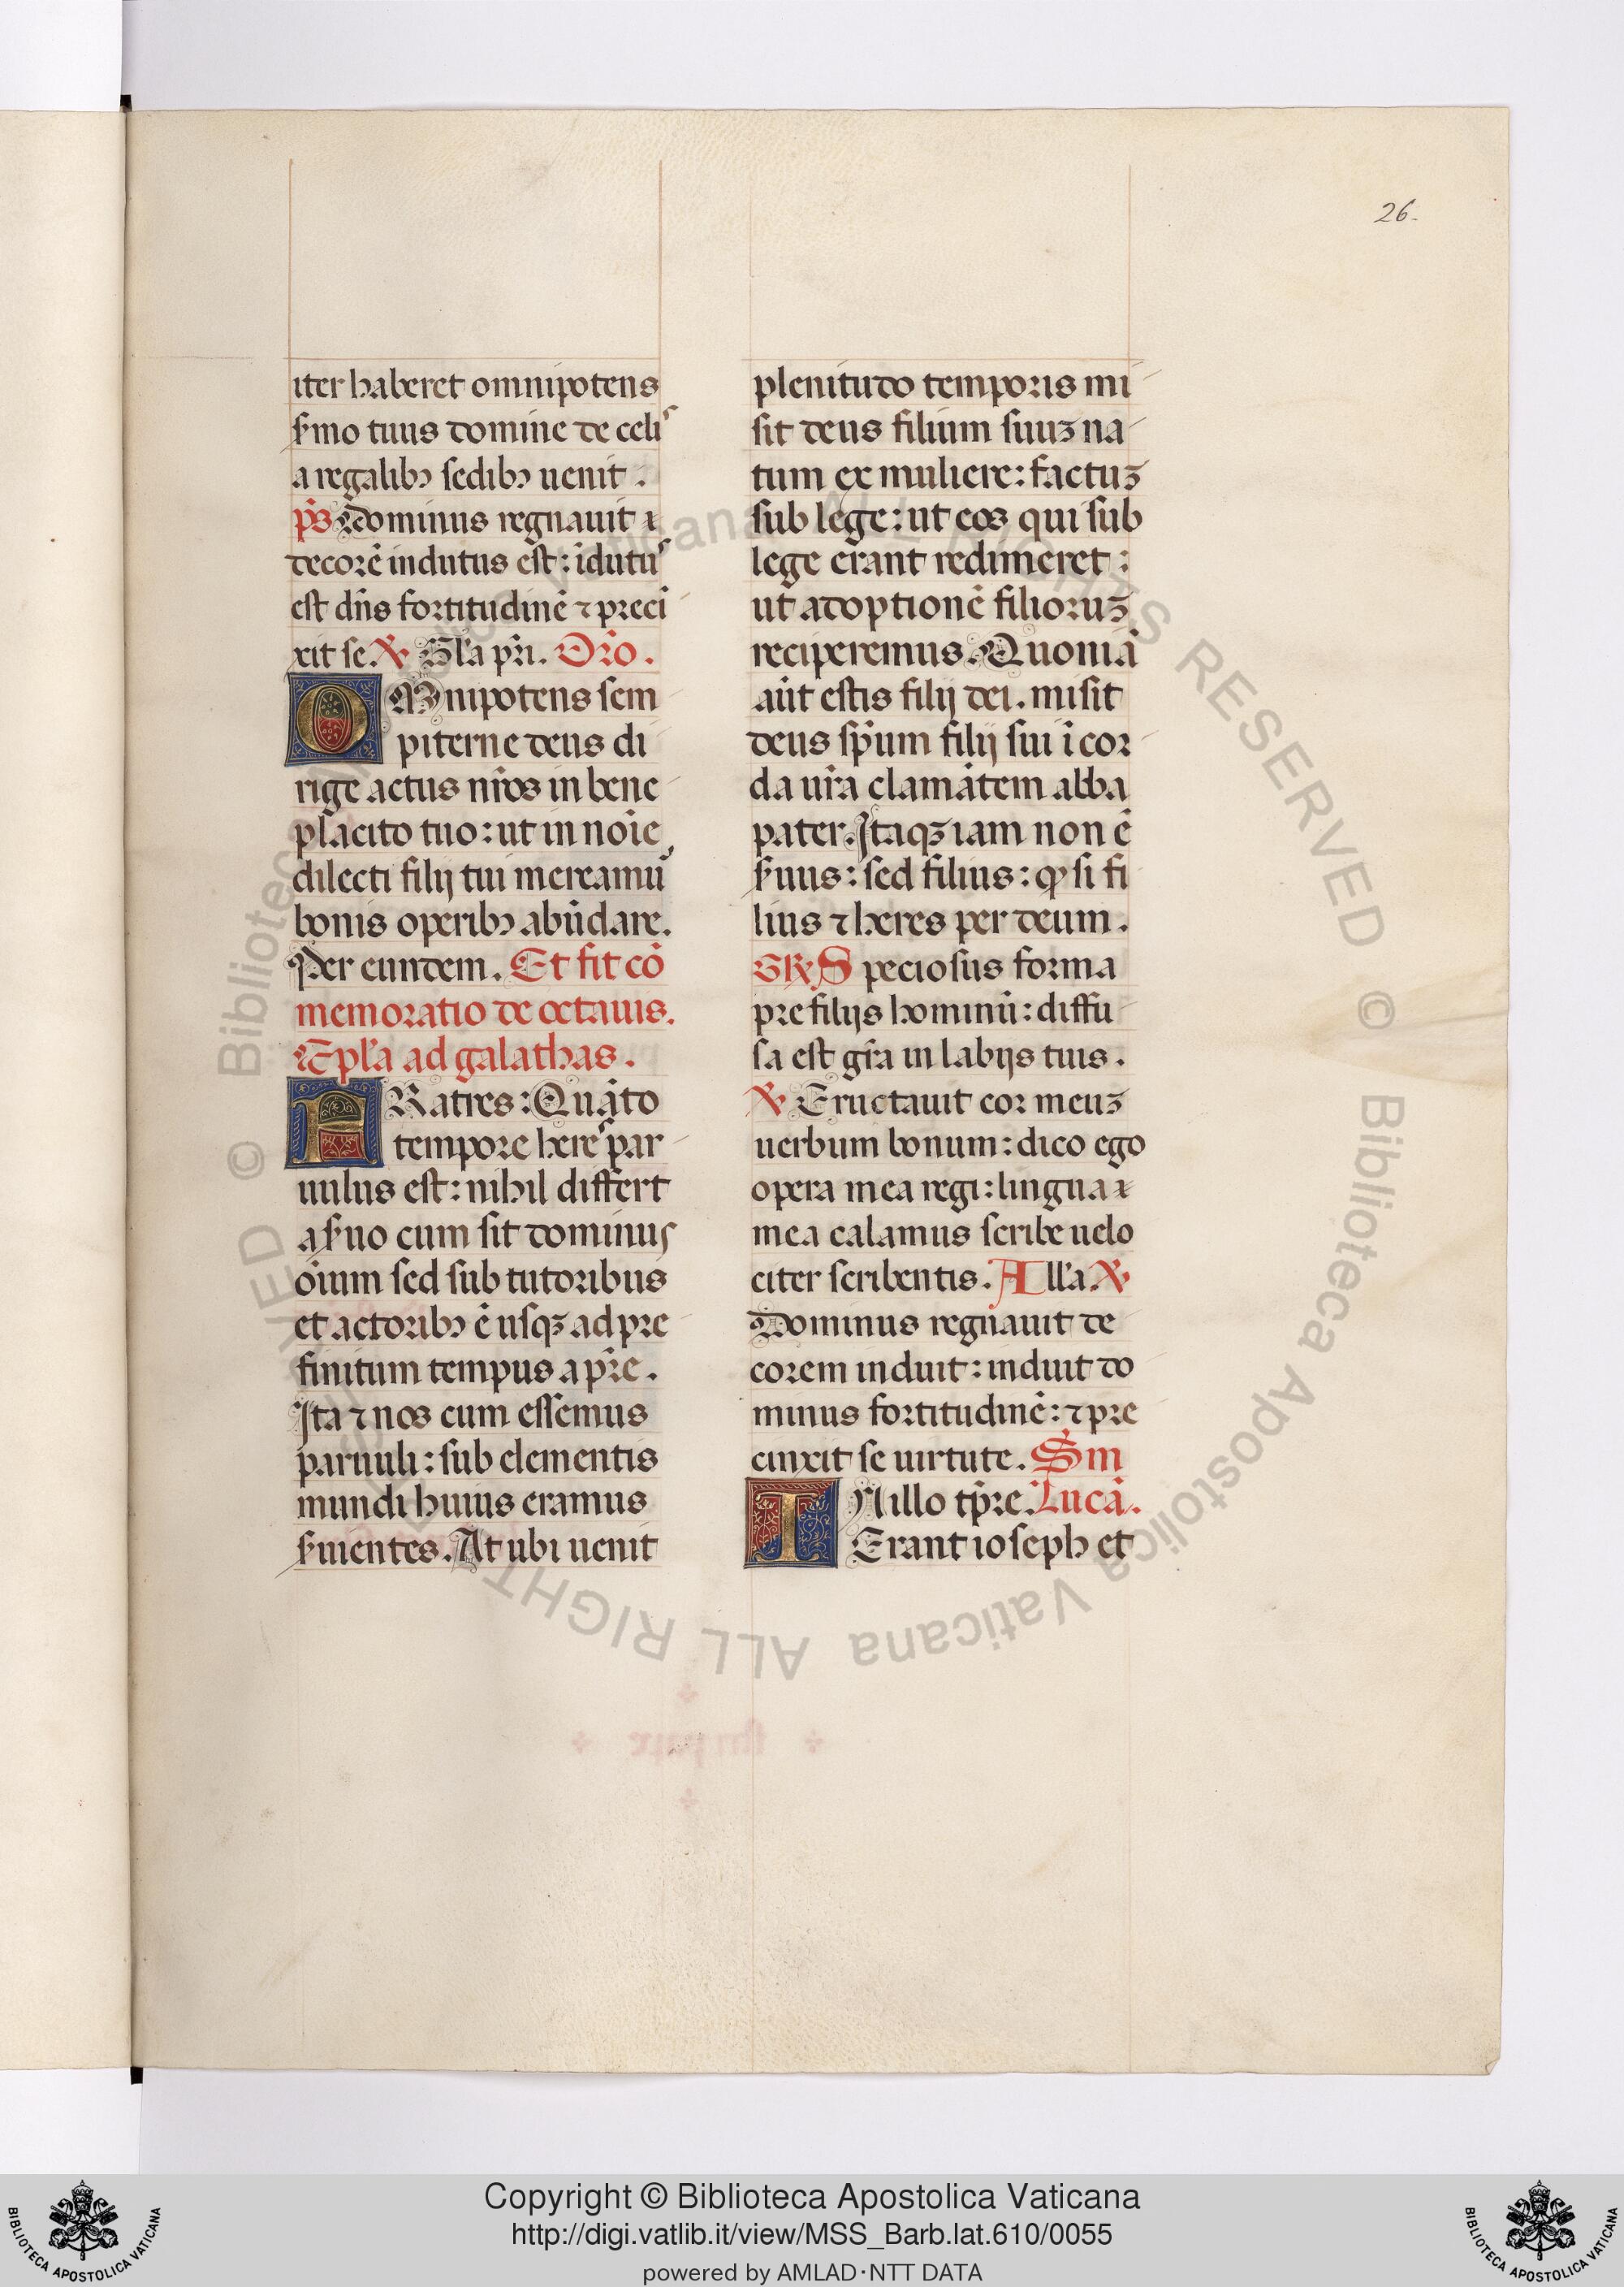 26.
iter haberet omnipotens
s̃mo tuus domine de celis
a regalibꝫ sedibꝫ uenit .
p̄s Dominus regnauit ⁊
decorē indutus est : īdutus
est dn̄s fortitudinē ⁊ preci
xit se. ℣ Gl̄a pr̄i. Or̄o.
OMnipotens sem
piterne deus di
rige actus nr̄os in bene
placito tuo : ut in noīe
dilecti filij tui mereamur
bonis operibꝫ abūdare.
Per eundem. Et fit cō
memoratio de octauis.
Epl̄a ad galathas .
FRatres : Quāto
tempore heres par
uulus est : nihil differt
a s̃uo cum sit dominus
oīum sed sub tutoribus
et actoribꝫ ē usqꝫ ad pre
finitum tempus a pr̄e .
Ita ⁊ nos cum essemus
paruuli : sub elementis
mundi huius eramus
s̃uientes. At ubi uenit
plenitudo temporis mi
sit deus filium suuꝫ na
tum ex muliere : factuꝫ
sub lege : ut eos qui sub
lege erant redimeret :
ut adoptionē filioruꝫ
reciperemus. Quoniā
aūt estis filij dei . misit
deus sp̄um filij sui ī cor
da ur̄a clamātem abba
pater. Itaqꝫ iam non ē
s̃uus : sed filius : ꝙ si fi
lius ⁊ heres per deum .
GR̃ Speciosus forma
pre filijs hominū : diffu
sa est gr̄a in labijs tuis .
℣ Eructauit cor meuꝫ
uerbum bonum : dico ego
opera mea regi : lingua
mea calamus scribe uelo
citer scribentis. All̄a. ℣
Dominus regnauit de
corem induit : induit do
minus fortitudinē : ⁊ pre
cinxit se uirtute . Sm̄
IN illo tp̄re. Lucā.
Erant ioseph et
© Biblioteca Apostolica Vaticana ALL RIGHTS RESERVED
© Biblioteca Apostolica Vaticana ALL RIGHTS RESERVED
Copyright © Biblioteca Apostolica Vaticana
http://digi.vatlib.it/view/MSS_Barb.lat.610/0055
powered by AMLAD·NTT DATA
BIBLIOTECA APOSTOLICA VATICANA
BIBLIOTECA APOSTOLICA VATICANA